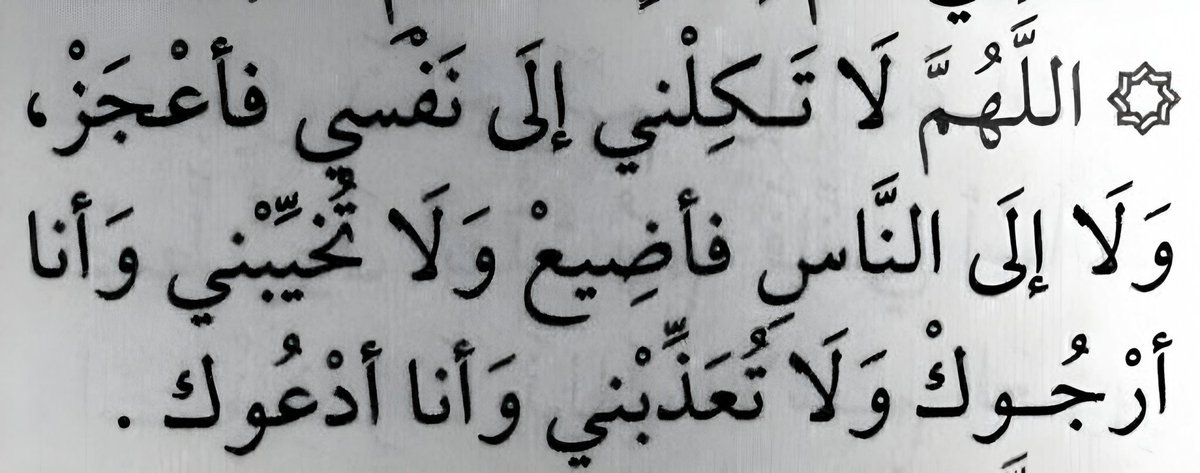 ۞ اللَّهُمَّ لَا تَـكِلْنـي إلَى نَفْسي فأعْجَزْ،
وَلَا إلَى النَّاسِ فأضِيعْ وَلَا تُخيِّبْني وَأنا
أرْجُـوكْ وَلَا تُعَذِّبْني وَأنا أدْعُوك .